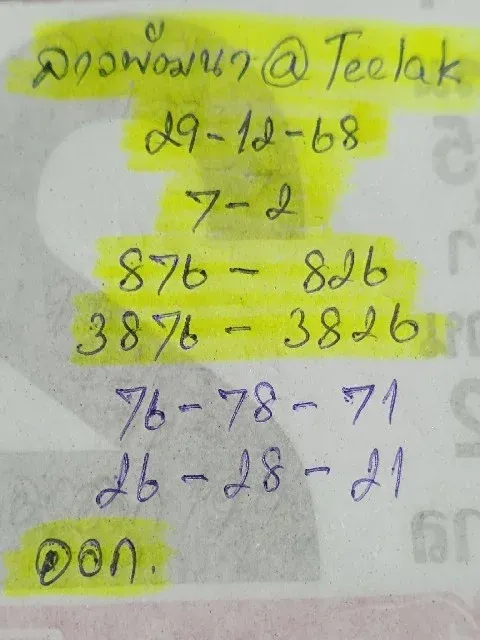 ลาวพัฒนา @ Teelak
29-12-68
7-2
876 - 826
3876 - 3826
76-78-71
26-28-21
ออก.